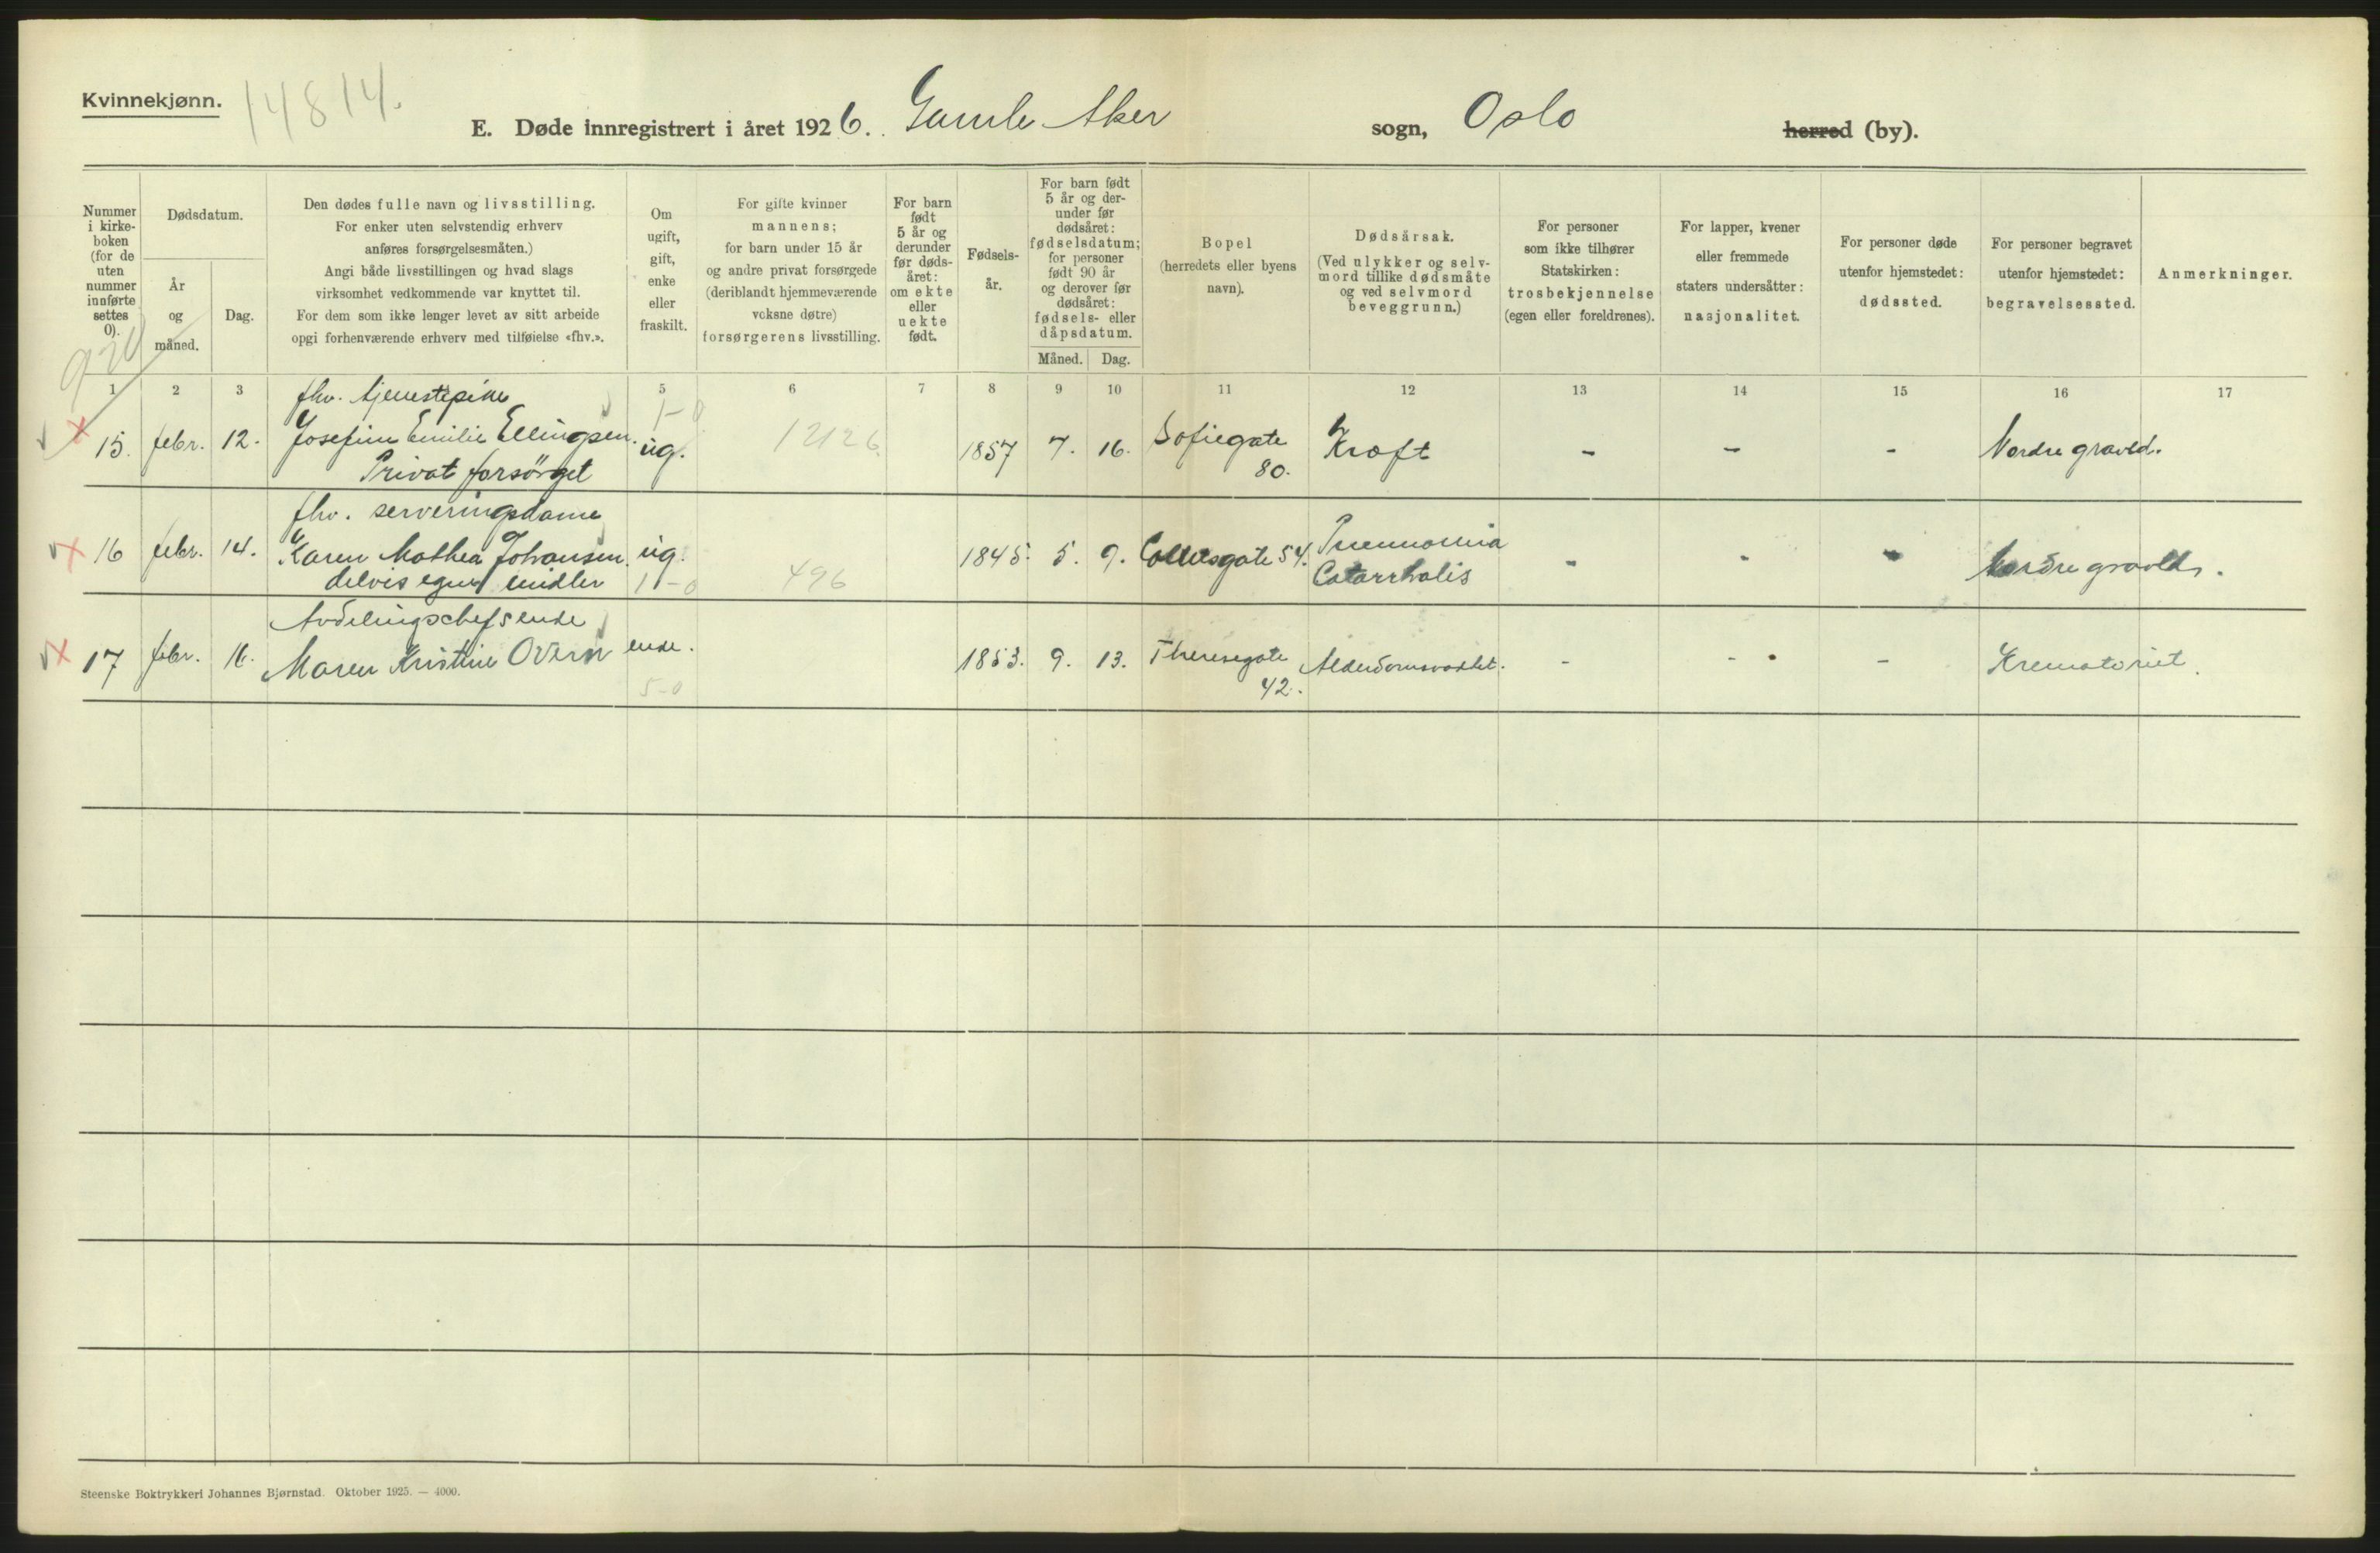 Kvinnekjønn.
14814.
E. Døde innregistrert i året 1926. Gamle Aker sogn, Oslo herred (by).
Nummer i kirke-boken (for de uten nummer innførte settes 0).
Dødsdatum.
År og måned.
Dag.
Den dødes fulle navn og livsstilling.
For enker uten selvstendig erhverv
anføres forsørgelsesmåten.)
Angi både livsstillingen og hvad slags
virksomhet vedkommende var knyttet til.
For dem som ikke lenger levet av sitt arbeide
opgi forhenværende erhverv med tilføielse «fhv.».
Om ugift, gift, enke eller fraskilt.
For gifte kvinner
mannens;
for barn under 15 år
og andre privat forsørgede
(deriblandt hjemmeværende
voksne døtre)
forsørgerens livsstilling.
For barn født 5 år og derunder før døds-året: om ekte eller uekte født.
Fødsels-år.
For barn født 5 år og der-under før dødsåret: fødselsdatum; for personer født 90 år og derover før dødsåret: fødsels- eller dåpsdatum.
Måned. Dag.
Bopel
(herredets eller byens navn).
Dødsårsak.
(Ved ulykker og selv-mord tillike dødsmåte og ved selvmord beveggrunn.)
For personer som ikke tilhører Statskirken: trosbekjennelse (egen eller foreldrenes).
For lapper, kvener eller fremmede staters undersåtter: nasjonalitet.
For personer døde utenfor hjemstedet: dødssted.
For personer begravet utenfor hjemstedet: begravelsessted.
Anmerkninger.
1 2 3 5 6 7 8 9 10 11 12 13 14 15 16 17
fhv. tjenestepike
15. febr. 12. Josefine Emilie Ellingsen. ug. 12126 1857 7. 16. Sofiegate 80. Kræft - - - Nordre gravld.
Privat forsørget
1-0
fhv. serveringsdame
16 febr. 14. Karen Mathea Johansen. ug. 1845. 5. 9. Colletsgate 54. Pneumonia Catarrhalis - - - Nordre gravld.
delvis egne midler 1-0 496
Avdelingschefs enke
17 febr. 16. Maren Kristine Overn enke. 1853. 9. 13. Theresegate 42. Alderdomssvakhet. - - - Krematoriet.
5-0
Steenske Boktrykkeri Johannes Bjørnstad. Oktober 1925. — 4000.